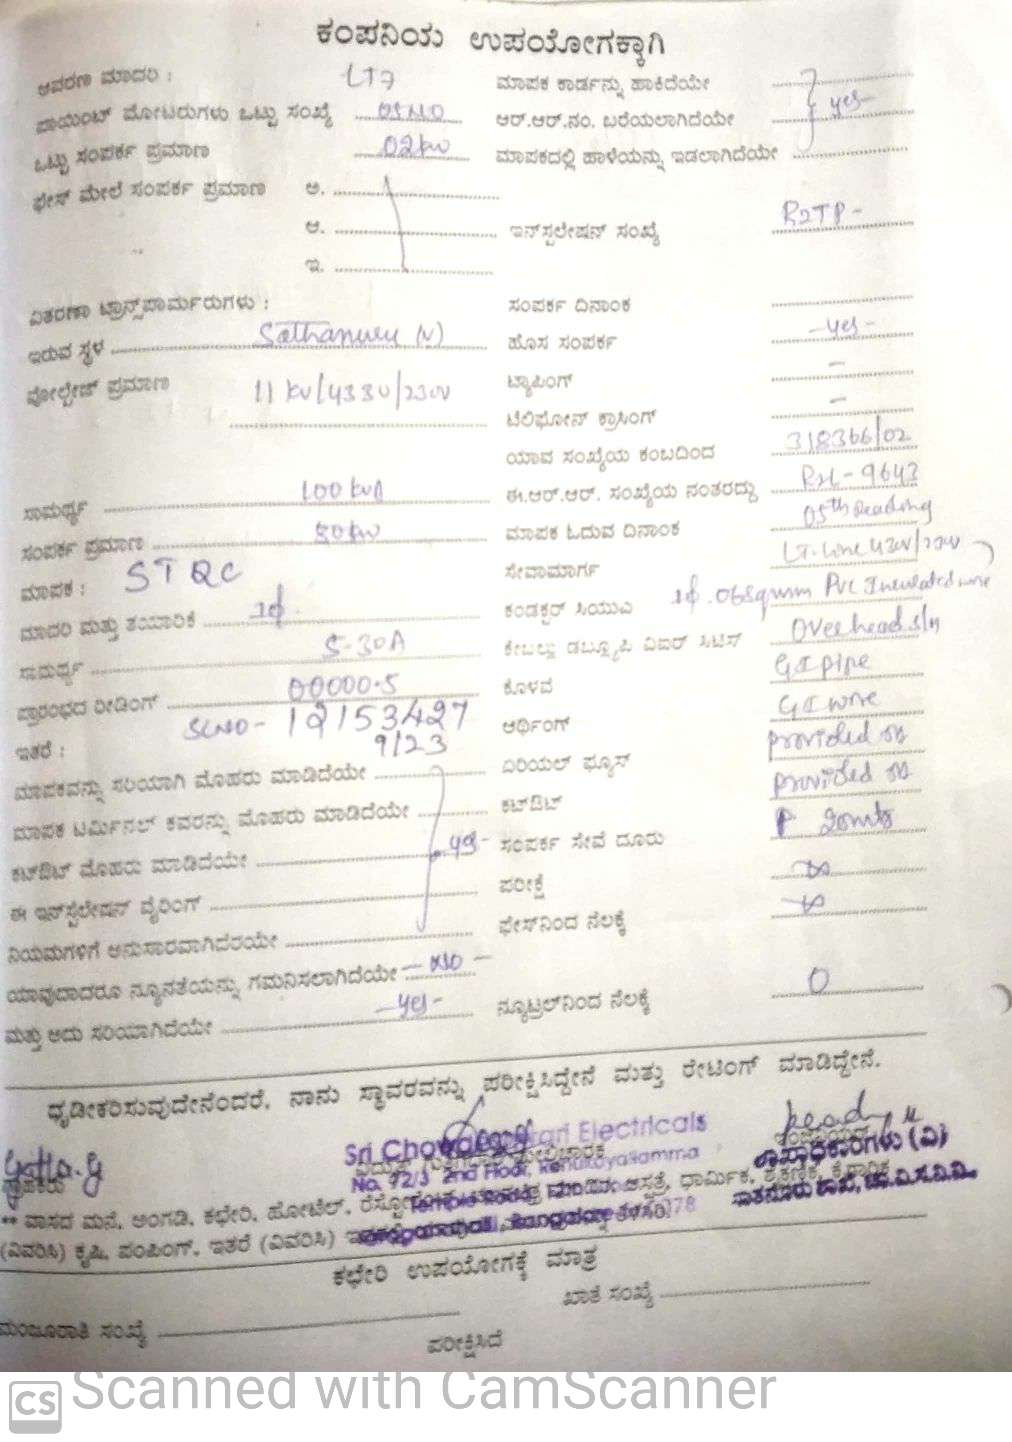 ಕಂಪನಿಯ ಉಪಯೋಗಕ್ಕಾಗಿ
ಆವರಣ ಮಾದರಿ : LT7 ಮಾಪಕ ಕಾರ್ಡನ್ನು ಹಾಕಿದೆಯೇ
ಪಾಯಿಂಟ್ ಮೋಟರುಗಳು ಒಟ್ಟು ಸಂಖ್ಯೆ ಆರ್.ಆರ್.ನಂ. ಬರೆಯಲಾಗಿದೆಯೇ yes
ಒಟ್ಟು ಸಂಪರ್ಕ ಪ್ರಮಾಣ 02kw ಮಾಪಕದಲ್ಲಿ ಹಾಳೆಯನ್ನು ಇಡಲಾಗಿದೆಯೇ
ಫೇಸ್ ಮೇಲೆ ಸಂಪರ್ಕ ಪ್ರಮಾಣ ಅ.
ಆ. ಇನ್‌ಸ್ಟಲೇಷನ್ ಸಂಖ್ಯೆ
ಇ.
ವಿತರಣಾ ಟ್ರಾನ್ಸ್‌ಫಾರ್ಮರುಗಳು : ಸಂಪರ್ಕ ದಿನಾಂಕ
ಇರುವ ಸ್ಥಳ Sathanuru (V) ಹೊಸ ಸಂಪರ್ಕ -yes-
ವೋಲ್ಟೇಜ್ ಪ್ರಮಾಣ 11 kv/ ಟ್ಯಾಪಿಂಗ್ -
ಟೆಲಿಫೋನ್ ಕ್ರಾಸಿಂಗ್ -
ಯಾವ ಸಂಖ್ಯೆಯ ಕಂಬದಿಂದ 318366/02
ಸಾಮರ್ಥ್ಯ 100 kva ಈ.ಆರ್.ಆರ್. ಸಂಖ್ಯೆಯ ನಂತರದ್ದು 9643
ಸಂಪರ್ಕ ಪ್ರಮಾಣ 80kw ಮಾಪಕ ಓದುವ ದಿನಾಂಕ 05th Reading
ಮಾಪಕ : ಸೇವಾಮಾರ್ಗ LT-line
ಮಾದರಿ ಮತ್ತು ತಯಾರಿಕೆ 1ϕ ಕಂಡಕ್ಟರ್ ಸಿಯುಎ 1ϕ. 06Sqmm PVC Insulated wire
ಸಾಮರ್ಥ್ಯ 5-30A ಕೇಬಲ್ಲು ಡಬ್ಲ್ಯೂಪಿ ವಿಐಆರ್ ಸಿಟಿಸ್ Overhead
ಪ್ರಾರಂಭದ ರೀಡಿಂಗ್ 00000.5 ಕೊಳವೆ GI pipe
ಇತರೆ : SLNO- 12153427 9/23 ಆರ್ಥಿಂಗ್ GI wire
ಮಾಪಕವನ್ನು ಸರಿಯಾಗಿ ಮೊಹರು ಮಾಡಿದೆಯೇ ಏರಿಯಲ್ ಫ್ಯೂಸ್ provided
ಮಾಪಕ ಟರ್ಮಿನಲ್ ಕವರನ್ನು ಮೊಹರು ಮಾಡಿದೆಯೇ ಕಟ್‌ಔಟ್ provided
ಕಟ್‌ಔಟ್ ಮೊಹರು ಮಾಡಿದೆಯೇ yes- ಸಂಪರ್ಕ ಸೇವೆ ದೂರು 20mts
ಈ ಇನ್‌ಸ್ಟಲೇಷನ್ ವೈರಿಂಗ್ ಪರೀಕ್ಷೆ
ನಿಯಮಗಳಿಗೆ ಅನುಸಾರವಾಗಿದೆಯೇ ಫೇಸ್‌ನಿಂದ ನೆಲಕ್ಕೆ
ಯಾವುದಾದರೂ ನ್ಯೂನತೆಯನ್ನು ಗಮನಿಸಲಾಗಿದೆಯೇ - NO -
ಮತ್ತು ಅದು ಸರಿಯಾಗಿದೆಯೇ -yes- ನ್ಯೂಟ್ರಲ್‌ನಿಂದ ನೆಲಕ್ಕೆ 0
ಧೃಡೀಕರಿಸುವುದೇನೆಂದರೆ, ನಾನು ಸ್ಥಾವರವನ್ನು ಪರೀಕ್ಷಿಸಿದ್ದೇನೆ ಮತ್ತು ರೇಟಿಂಗ್ ಮಾಡಿದ್ದೇನೆ.
Sri Electricals
No. 72/3 2nd Floor, Renukayallamma
** ವಾಸದ ಮನೆ, ಅಂಗಡಿ, ಕಛೇರಿ, ಹೋಟೆಲ್, ಧಾರ್ಮಿಕ, ಶೈಕ್ಷಣಿಕ,
(ವಿವರಿಸಿ) ಕೃಷಿ, ಪಂಪಿಂಗ್, ಇತರೆ (ವಿವರಿಸಿ)
ಕಛೇರಿ ಉಪಯೋಗಕ್ಕೆ ಮಾತ್ರ
ಮಂಜೂರಾತಿ ಸಂಖ್ಯೆ ಖಾತೆ ಸಂಖ್ಯೆ
ಪರೀಕ್ಷಿಸಿದೆ
CS Scanned with CamScanner